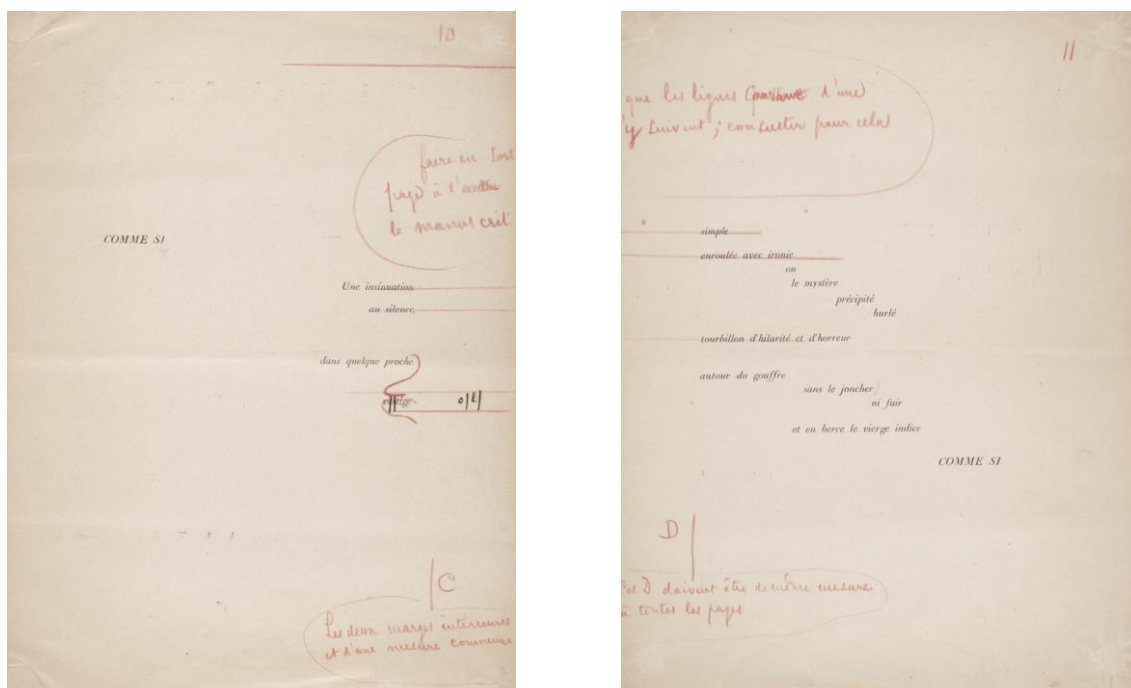 10
faire en sort
page à l'
le manuscrit
COMME SI
Une insinuation
au silence
dans quelque proche
o/l/
C
Les deux marges intérieures
et d'une mesure commune
11
que les lignes d'une
'y suivent ; consulter pour cela
simple
enroulée avec ironie
ou
le mystère
précipité
hurlé
tourbillon d'hilarité et d'horreur
autour du gouffre
sans le joncher
ni fuir
et en berce le vierge indice
COMME SI
D
et D doivent être de même mesure
à toutes les pages